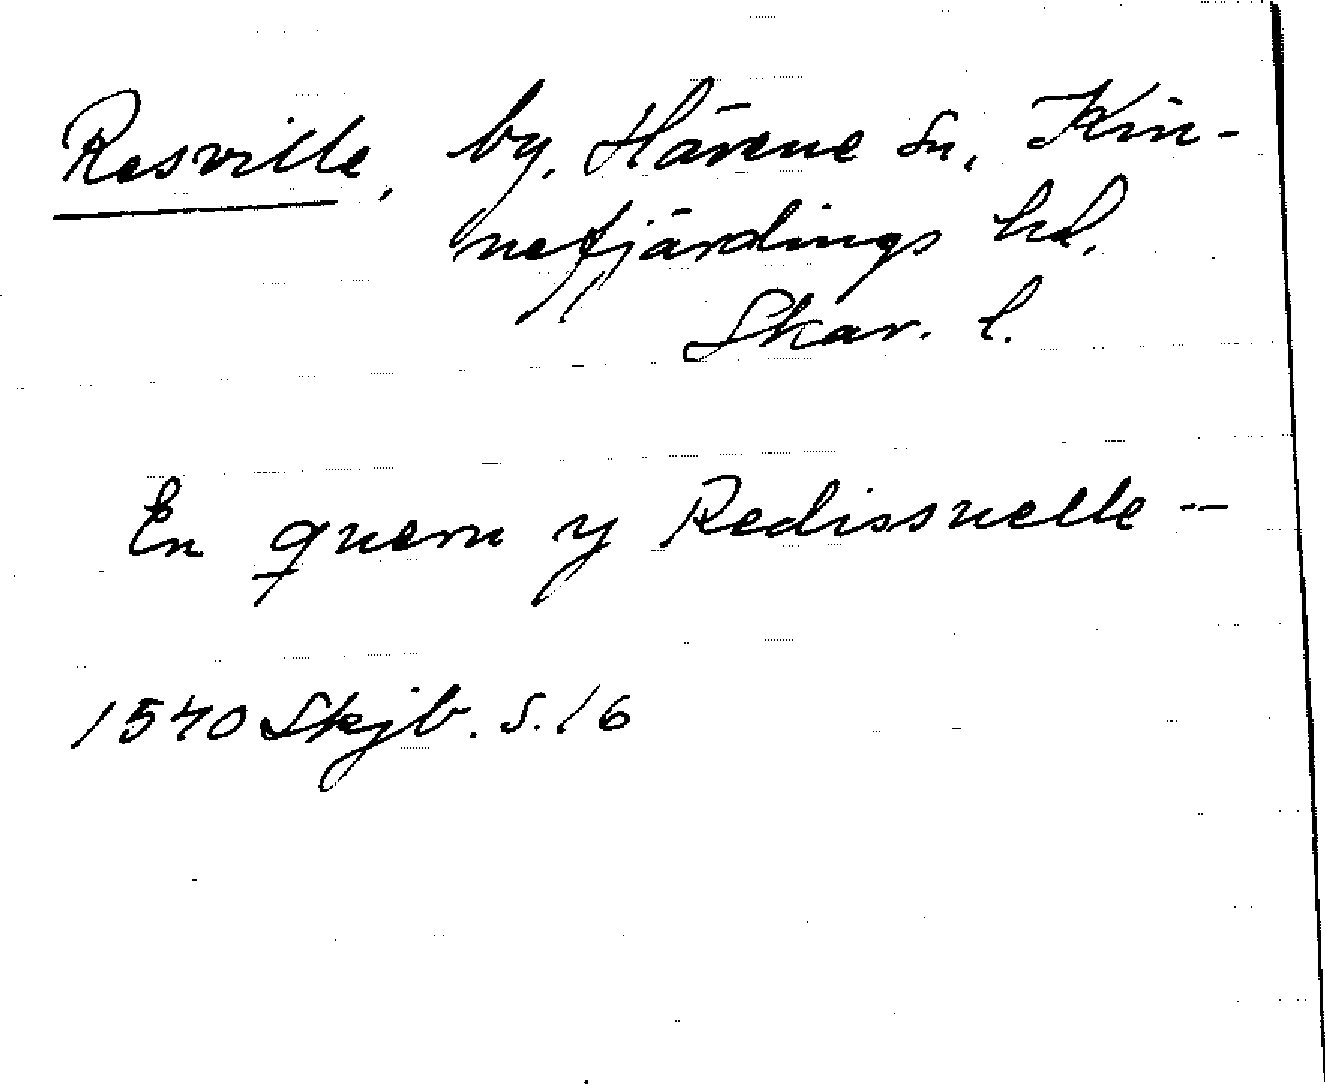 Resville, by, Härene sn, Kin-
nefjärdings hd.
Skar. l.
En quern y Redissuelle --
1540 Skjb. s. 16